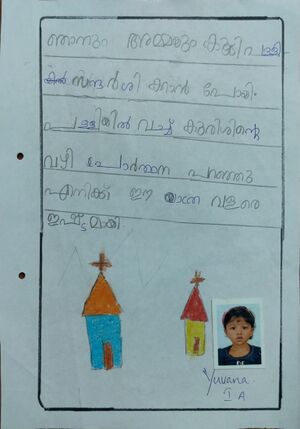 ഞാനും അമ്മയും കൂടി പള്ളി
സന്ദർശി ക്കാൻ പോയി.
പള്ളിയിൽ വച്ച് കുരിശിന്റെ
വഴി പ്രാർത്ഥന പറഞ്ഞു
എനിക്ക് ഈ യാത്ര വളരെ
ഇഷ്ട്ടമായി.
Yuvana.
I A